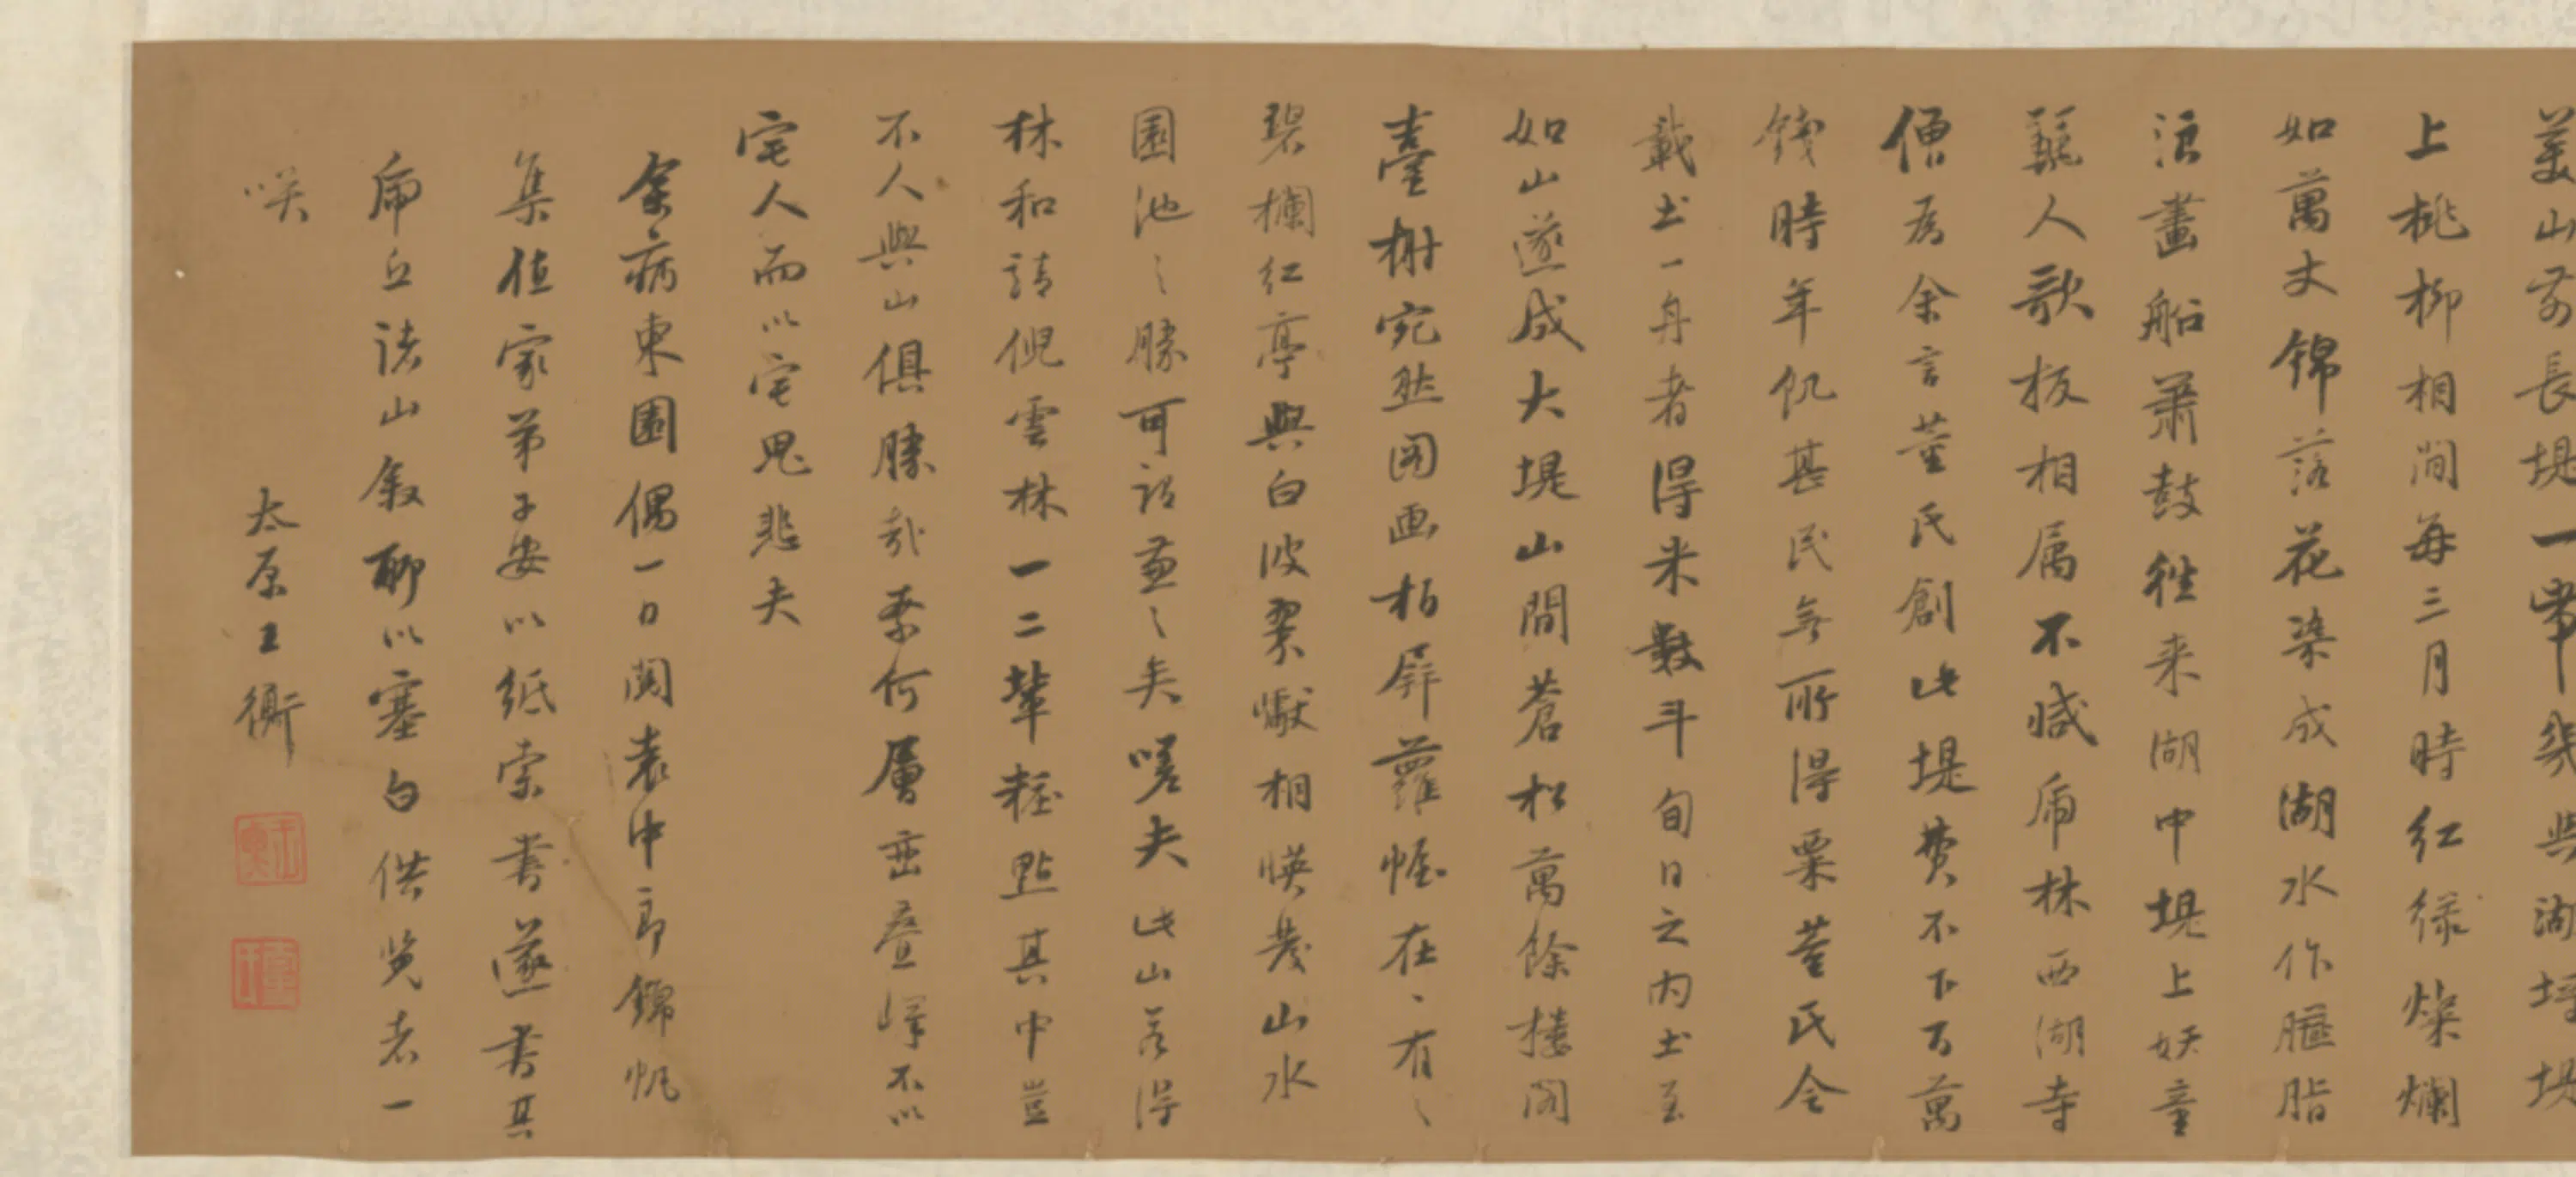 山前長堤一帶幾與湖埒堤
上桃柳相間每三月時紅綠燦爛
如萬丈錦落花染成湖水作胭脂
浪畫船簫鼓往来湖中堤上妖童
麗人歌板相属不減虎林西湖寺
僧為余言董氏創此堤費不下百萬
錢時年饥甚民無所得粟董氏令
載土一舟者得米數斗旬日之内土至
如山遂成大堤山間蒼松萬餘樓閣
臺榭宛然图画栢屏蘿幄在、有之
碧欄紅亭與白波翠巘相暎發山水
園池之勝可謂兼之矣嗟夫此山若得
林和靖倪雲林一二輩粧點其中豈
不人與山俱勝哉奈何層巒疊嶂不以
宅人而以宅鬼悲夫
余病東園偶一日閱袁中郎錦帆
集值家弟子安以紙索書遂書其
虎丘諸山叙聊以塞白供览者一
咲
太原王衡